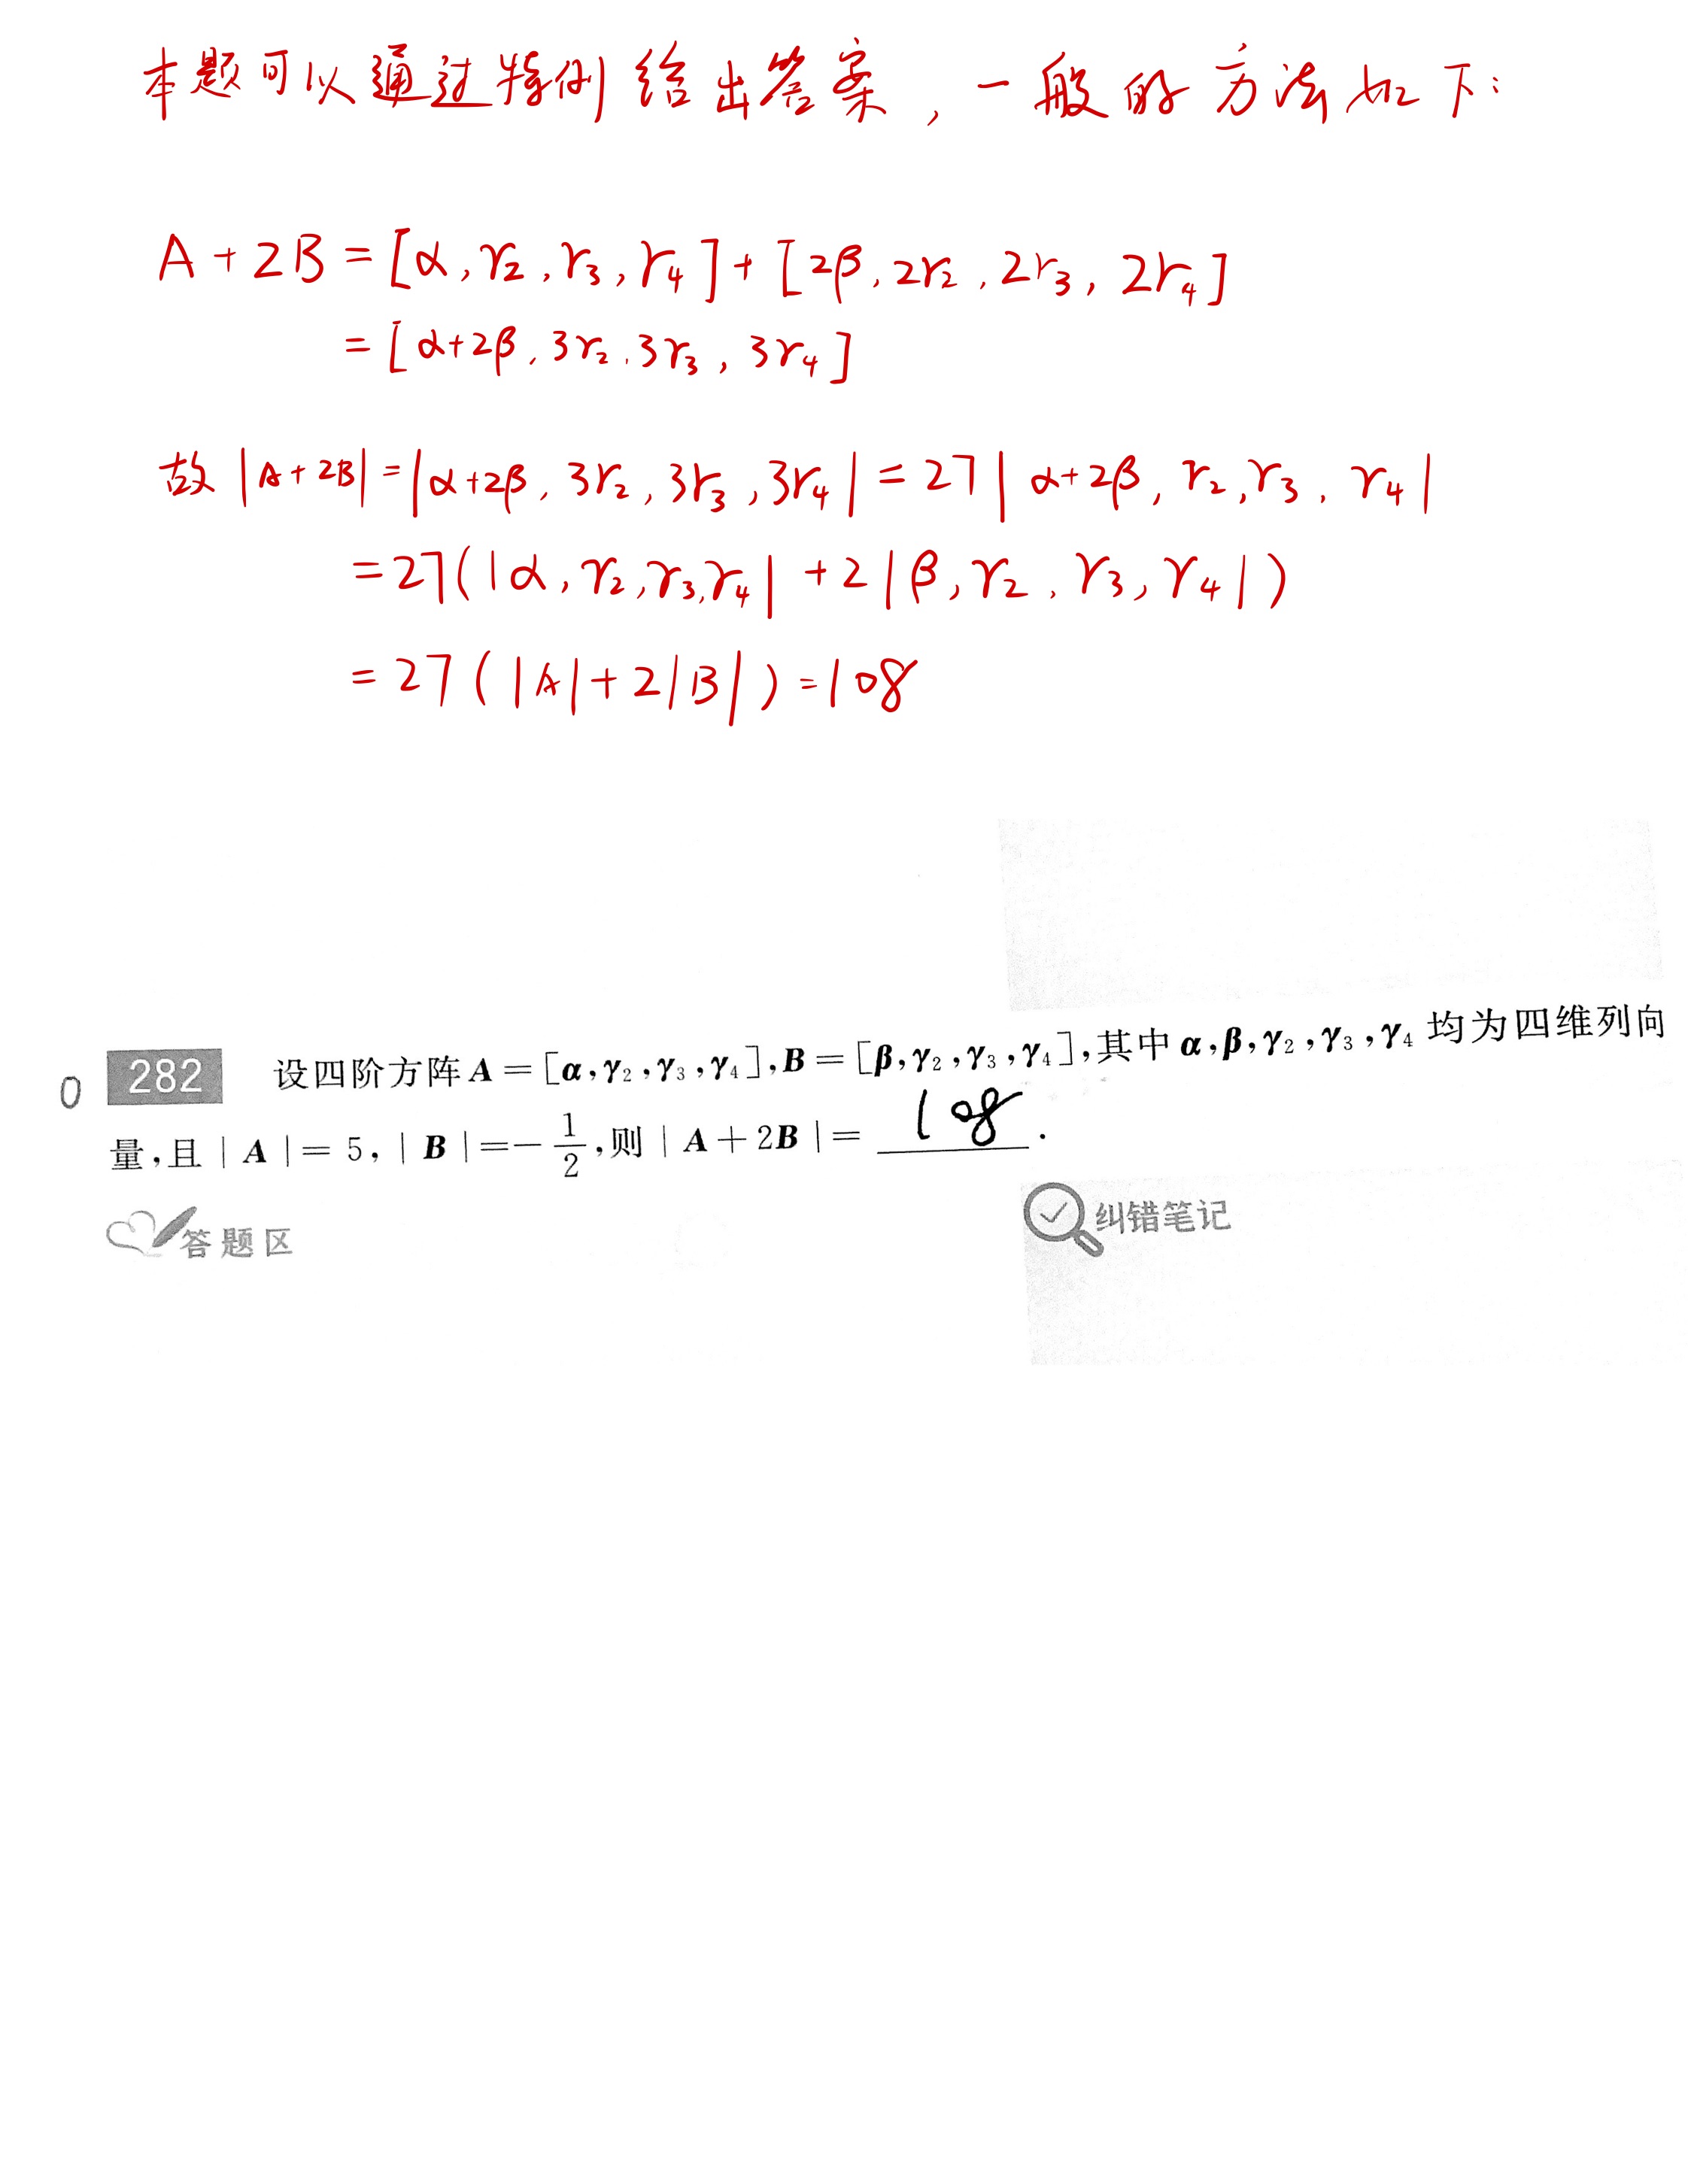 本题可以通过特例给出答案，一般的方法如下：
A + 2B = [α, γ₂, γ₃, γ₄] + [2β, 2γ₂, 2γ₃, 2γ₄]
= [α+2β, 3γ₂, 3γ₃, 3γ₄]
故 |A+2B| = |α+2β, 3γ₂, 3γ₃, 3γ₄| = 27 | α+2β, γ₂, γ₃, γ₄ |
= 27( |α, γ₂, γ₃, γ₄| + 2 |β, γ₂, γ₃, γ₄| )
= 27 ( |A| + 2|B| ) = 108
0 282 设四阶方阵 A = [α, γ₂, γ₃, γ₄], B = [β, γ₂, γ₃, γ₄], 其中 α, β, γ₂, γ₃, γ₄ 均为四维列向
量, 且 | A | = 5, | B | = − 1/2, 则 | A + 2B | = 108 .
答题区 纠错笔记